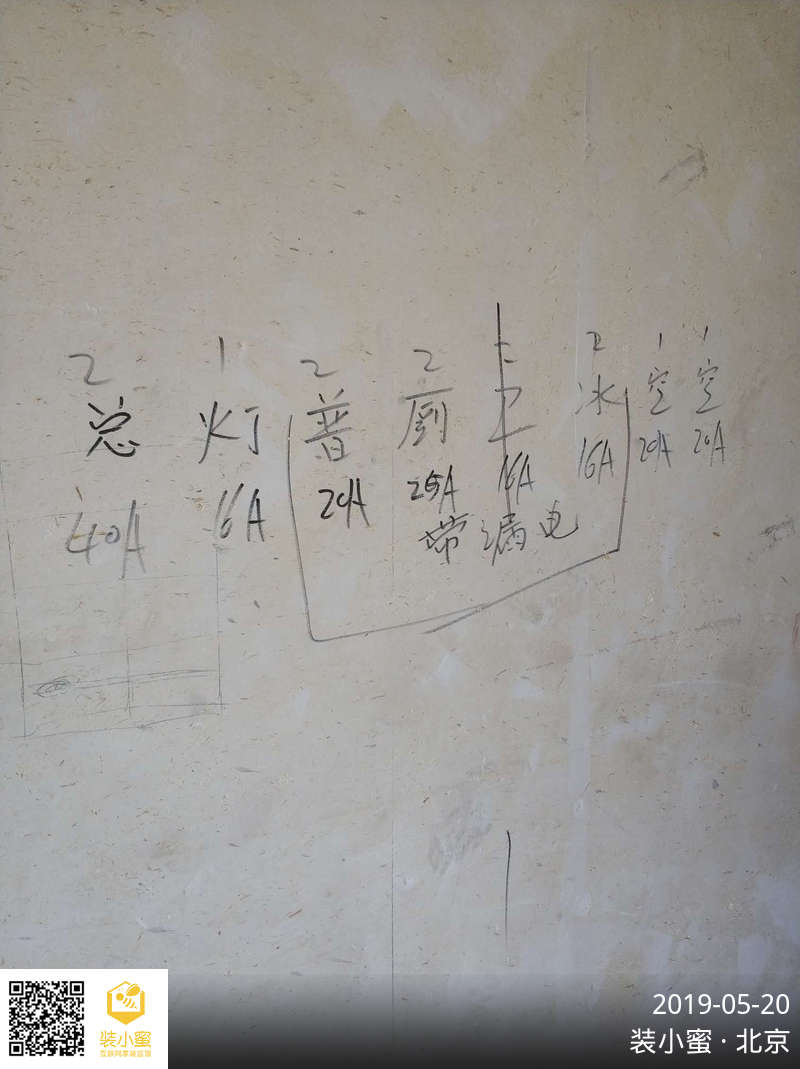 2 1 2 2 2 2 1 1
总 灯 普 厨 卫 冰 空 空
40A 16A 20A 25A 16A 16A 20A 20A
带漏电
装小蜜
2019-05-20
装小蜜·北京